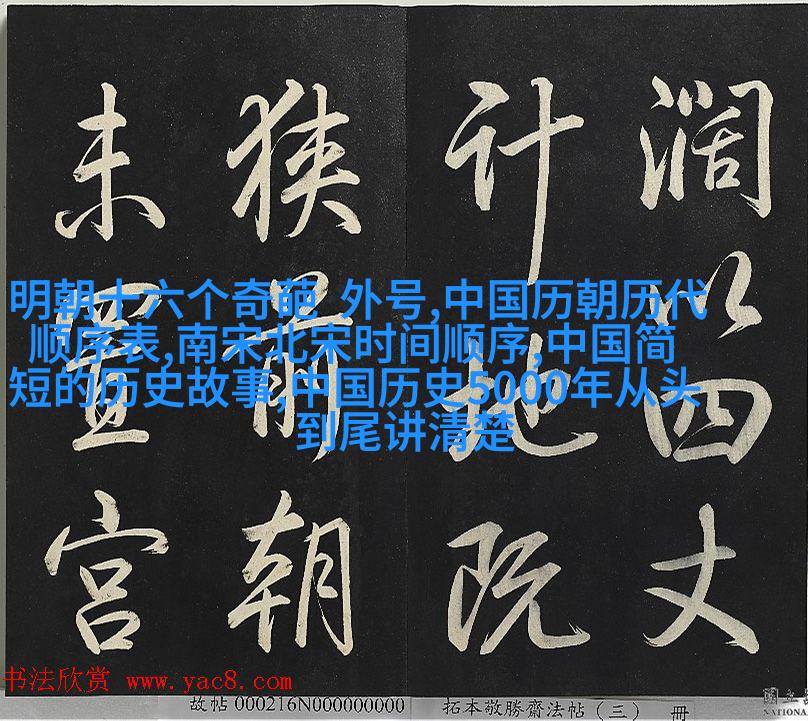 濶以四丈
計地既
狹前朝
未置宮
明朝十六个奇葩 外号,中国历朝历代
顺序表,南宋北宋时间顺序,中国简
短的历史故事,中国历史5000年从头
到尾讲清楚
书法欣赏 www.yac8.com
故帖 000216N000000000
拓本敬勝齋法帖(三) 冊
國立
NATIONA